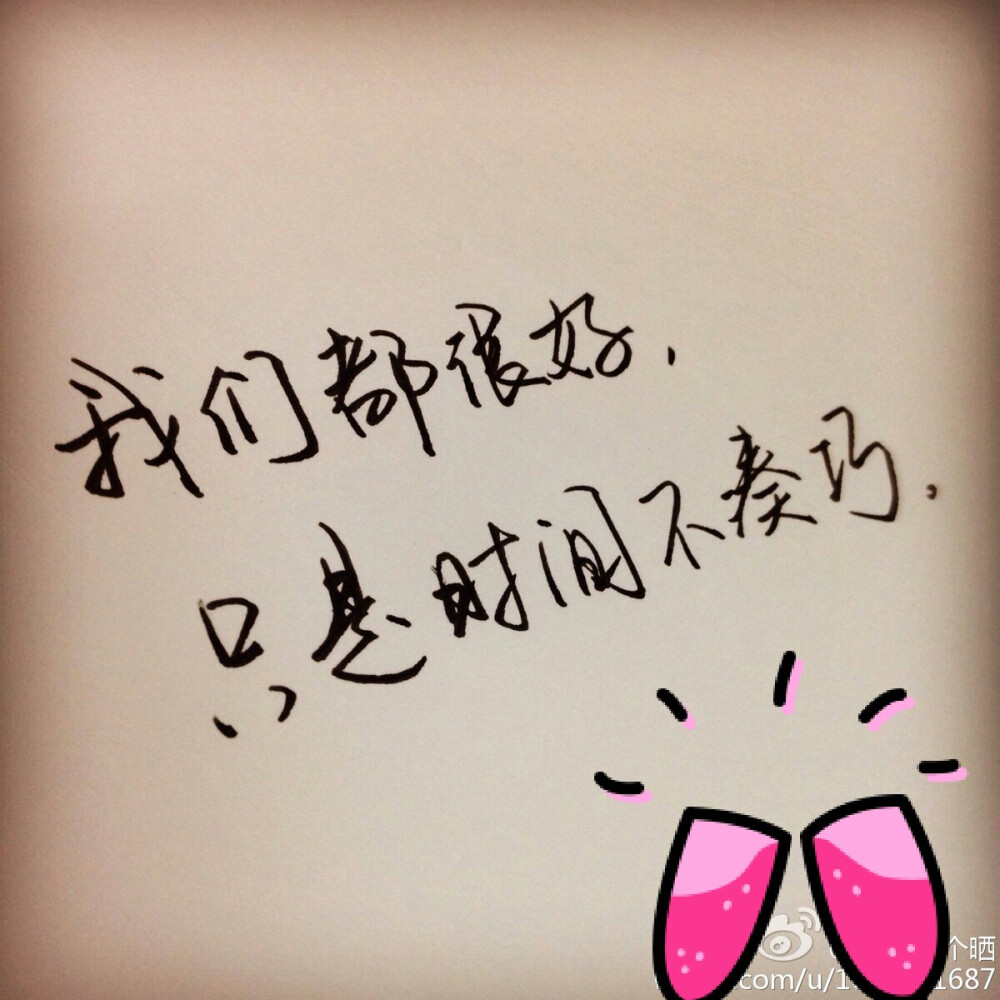 我们都很好.
只是时间不凑巧.
个晒
.com/u/1
1687